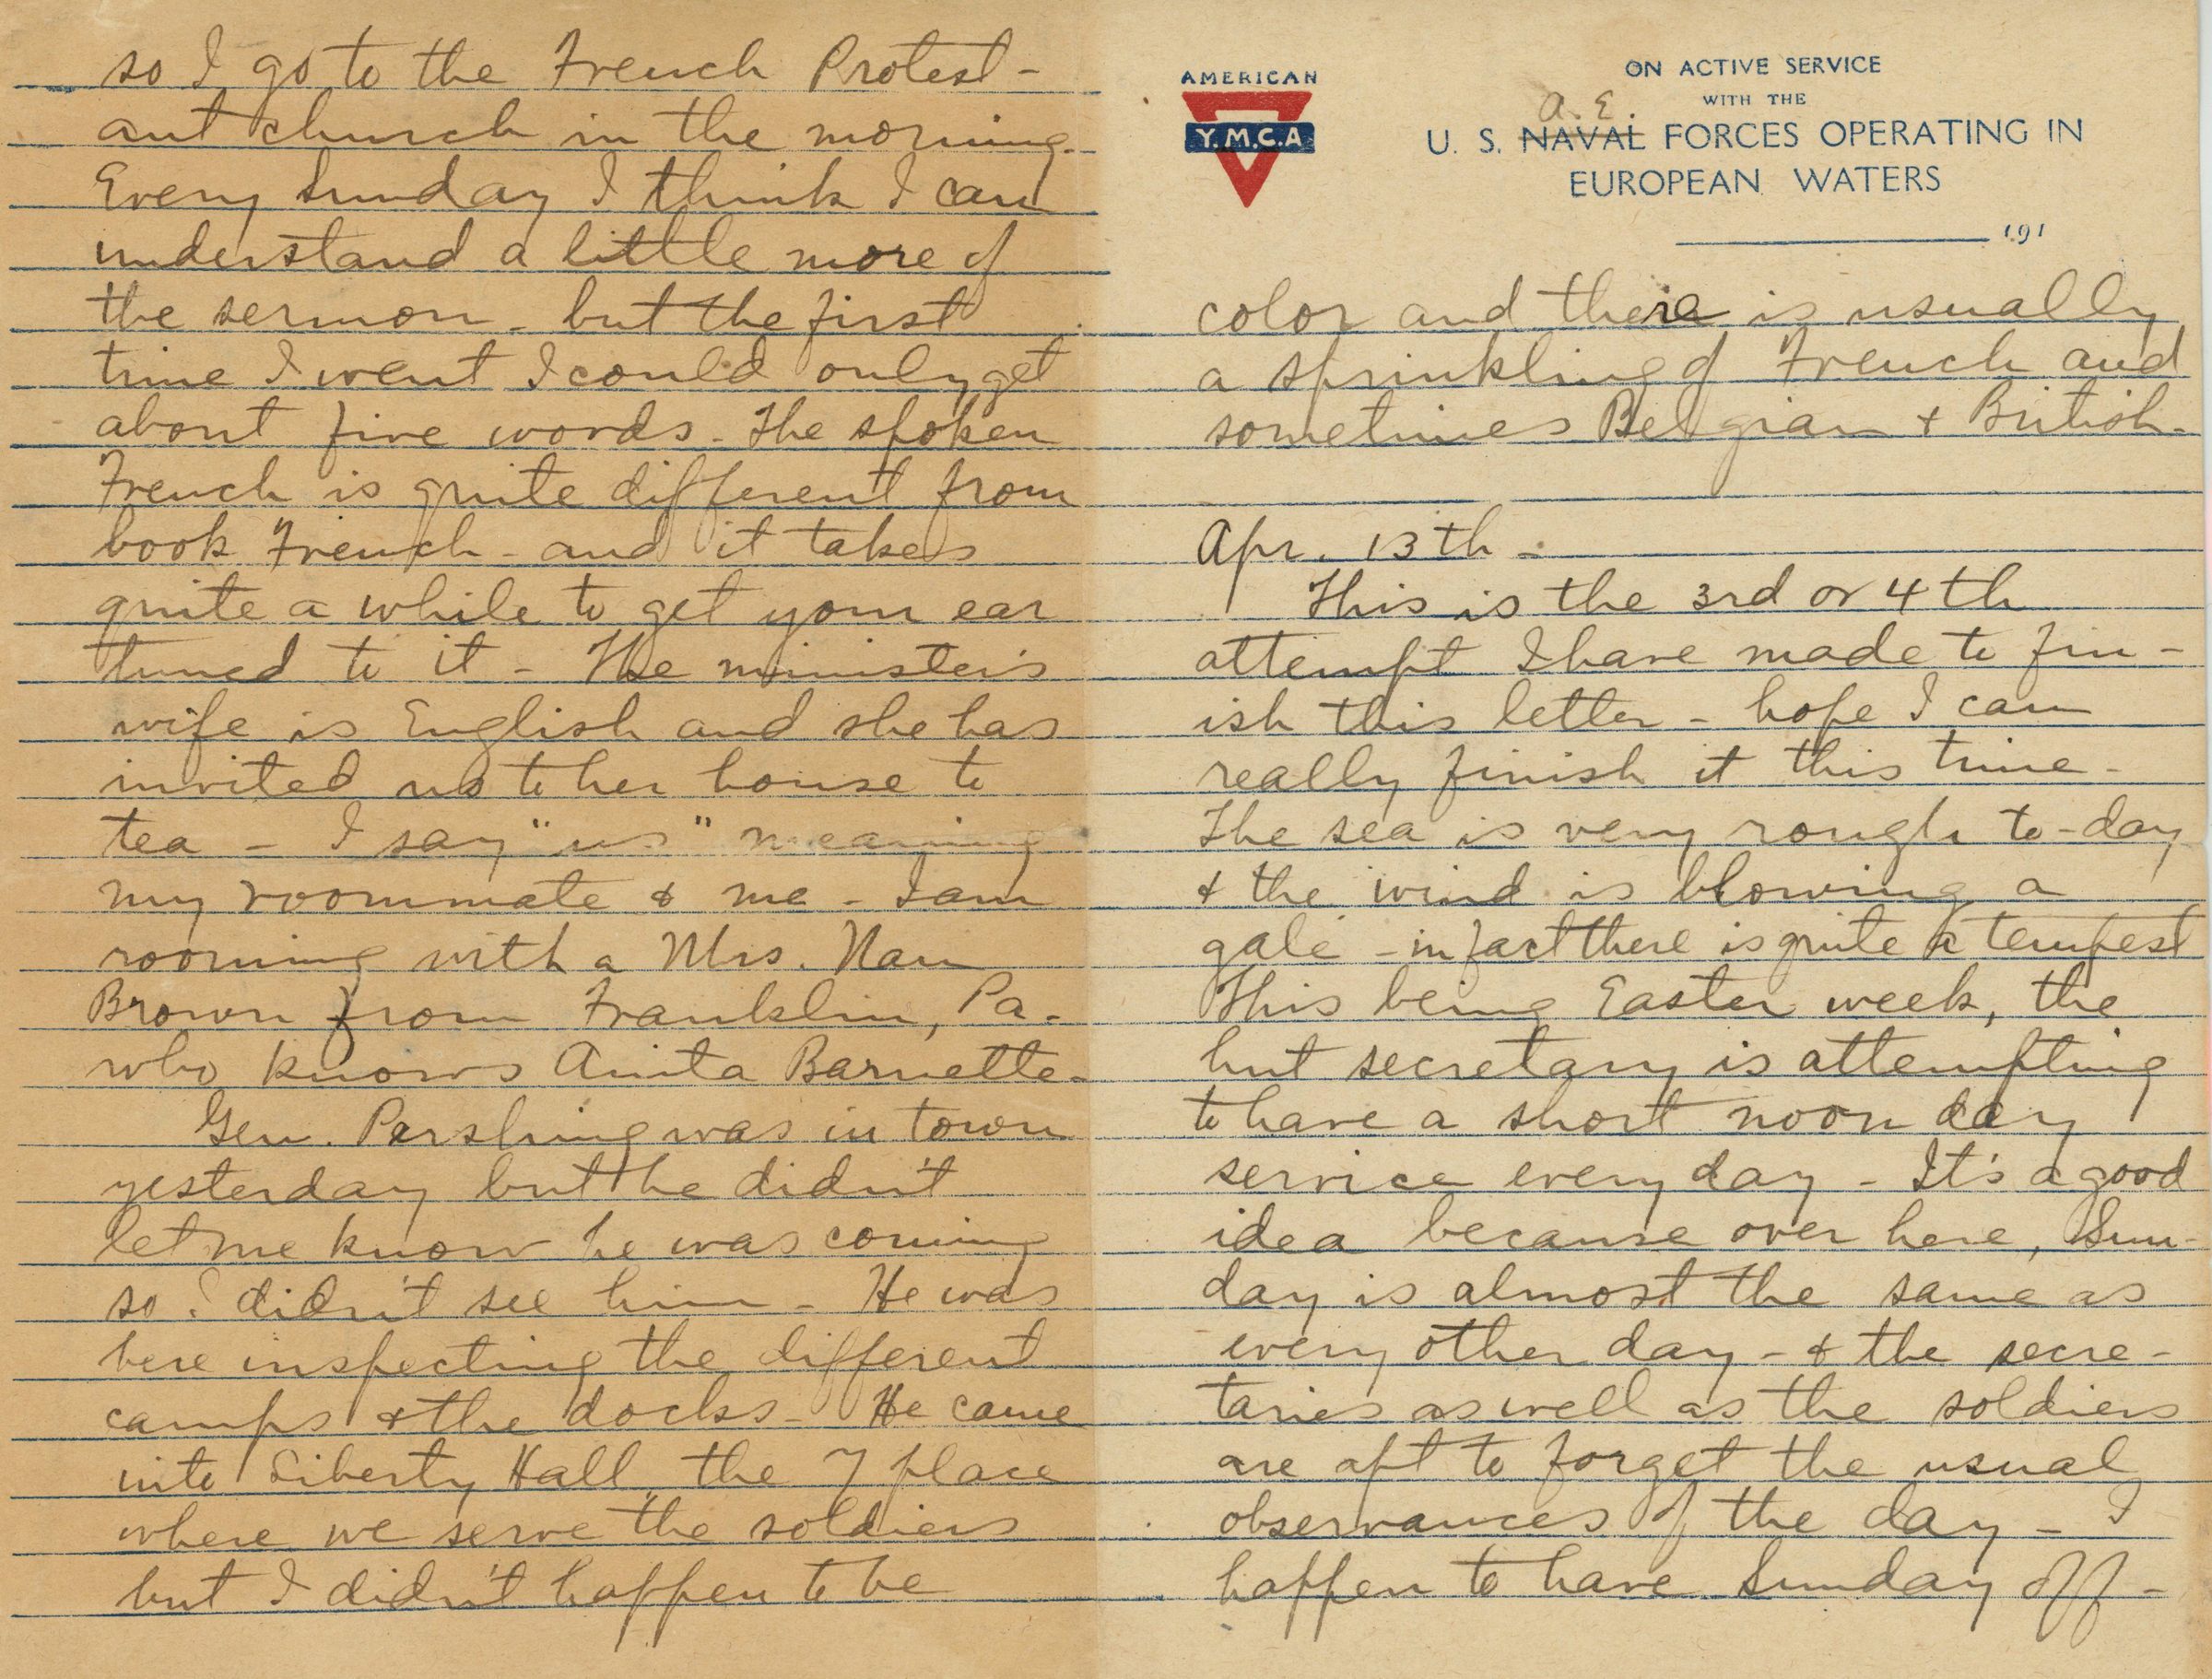 AMERICAN
Y.M.C.A
ON ACTIVE SERVICE
WITH THE
A. E.
U. S. NAVAL FORCES OPERATING IN
EUROPEAN WATERS
191
color and there is usually
a sprinkling of French and
sometimes Belgian & British.
Apr. 13th -
This is the 3rd or 4th
attempt I have made to fin-
ish this letter - hope I can
really finish it this time -
The sea is very rough to-day
& the wind is blowing a
gale - in fact there is quite a tempest
This being Easter week, the
hut secretary is attempting
to have a short noon day
service every day - It's a good
idea because over here, Sun-
day is almost the same as
every other day - & the secre-
taries as well as the soldiers
are apt to forget the usual
observances of the day - I
happen to have Sunday off -
so I go to the French Protest-
ant church in the morning.
Every Sunday I think I can
understand a little more of
the sermon - but the first
time I went I could only get
about five words. The spoken
French is quite different from
book French - and it takes
quite a while to get your ear
tuned to it - The minister's
wife is English and she has
invited us to her house to
tea - I say "us" meaning
my roommate & me - I am
rooming with a Mrs. Nan
Brown from Franklin, Pa.
who knows Anita Barnette.
Gen. Pershing was in town
yesterday but he didn't
let me know he was coming
so I didn't see him - He was
here inspecting the different
camps & the docks - He came
into Liberty Hall, the Y place
where we serve the soldiers
but I didn't happen to be